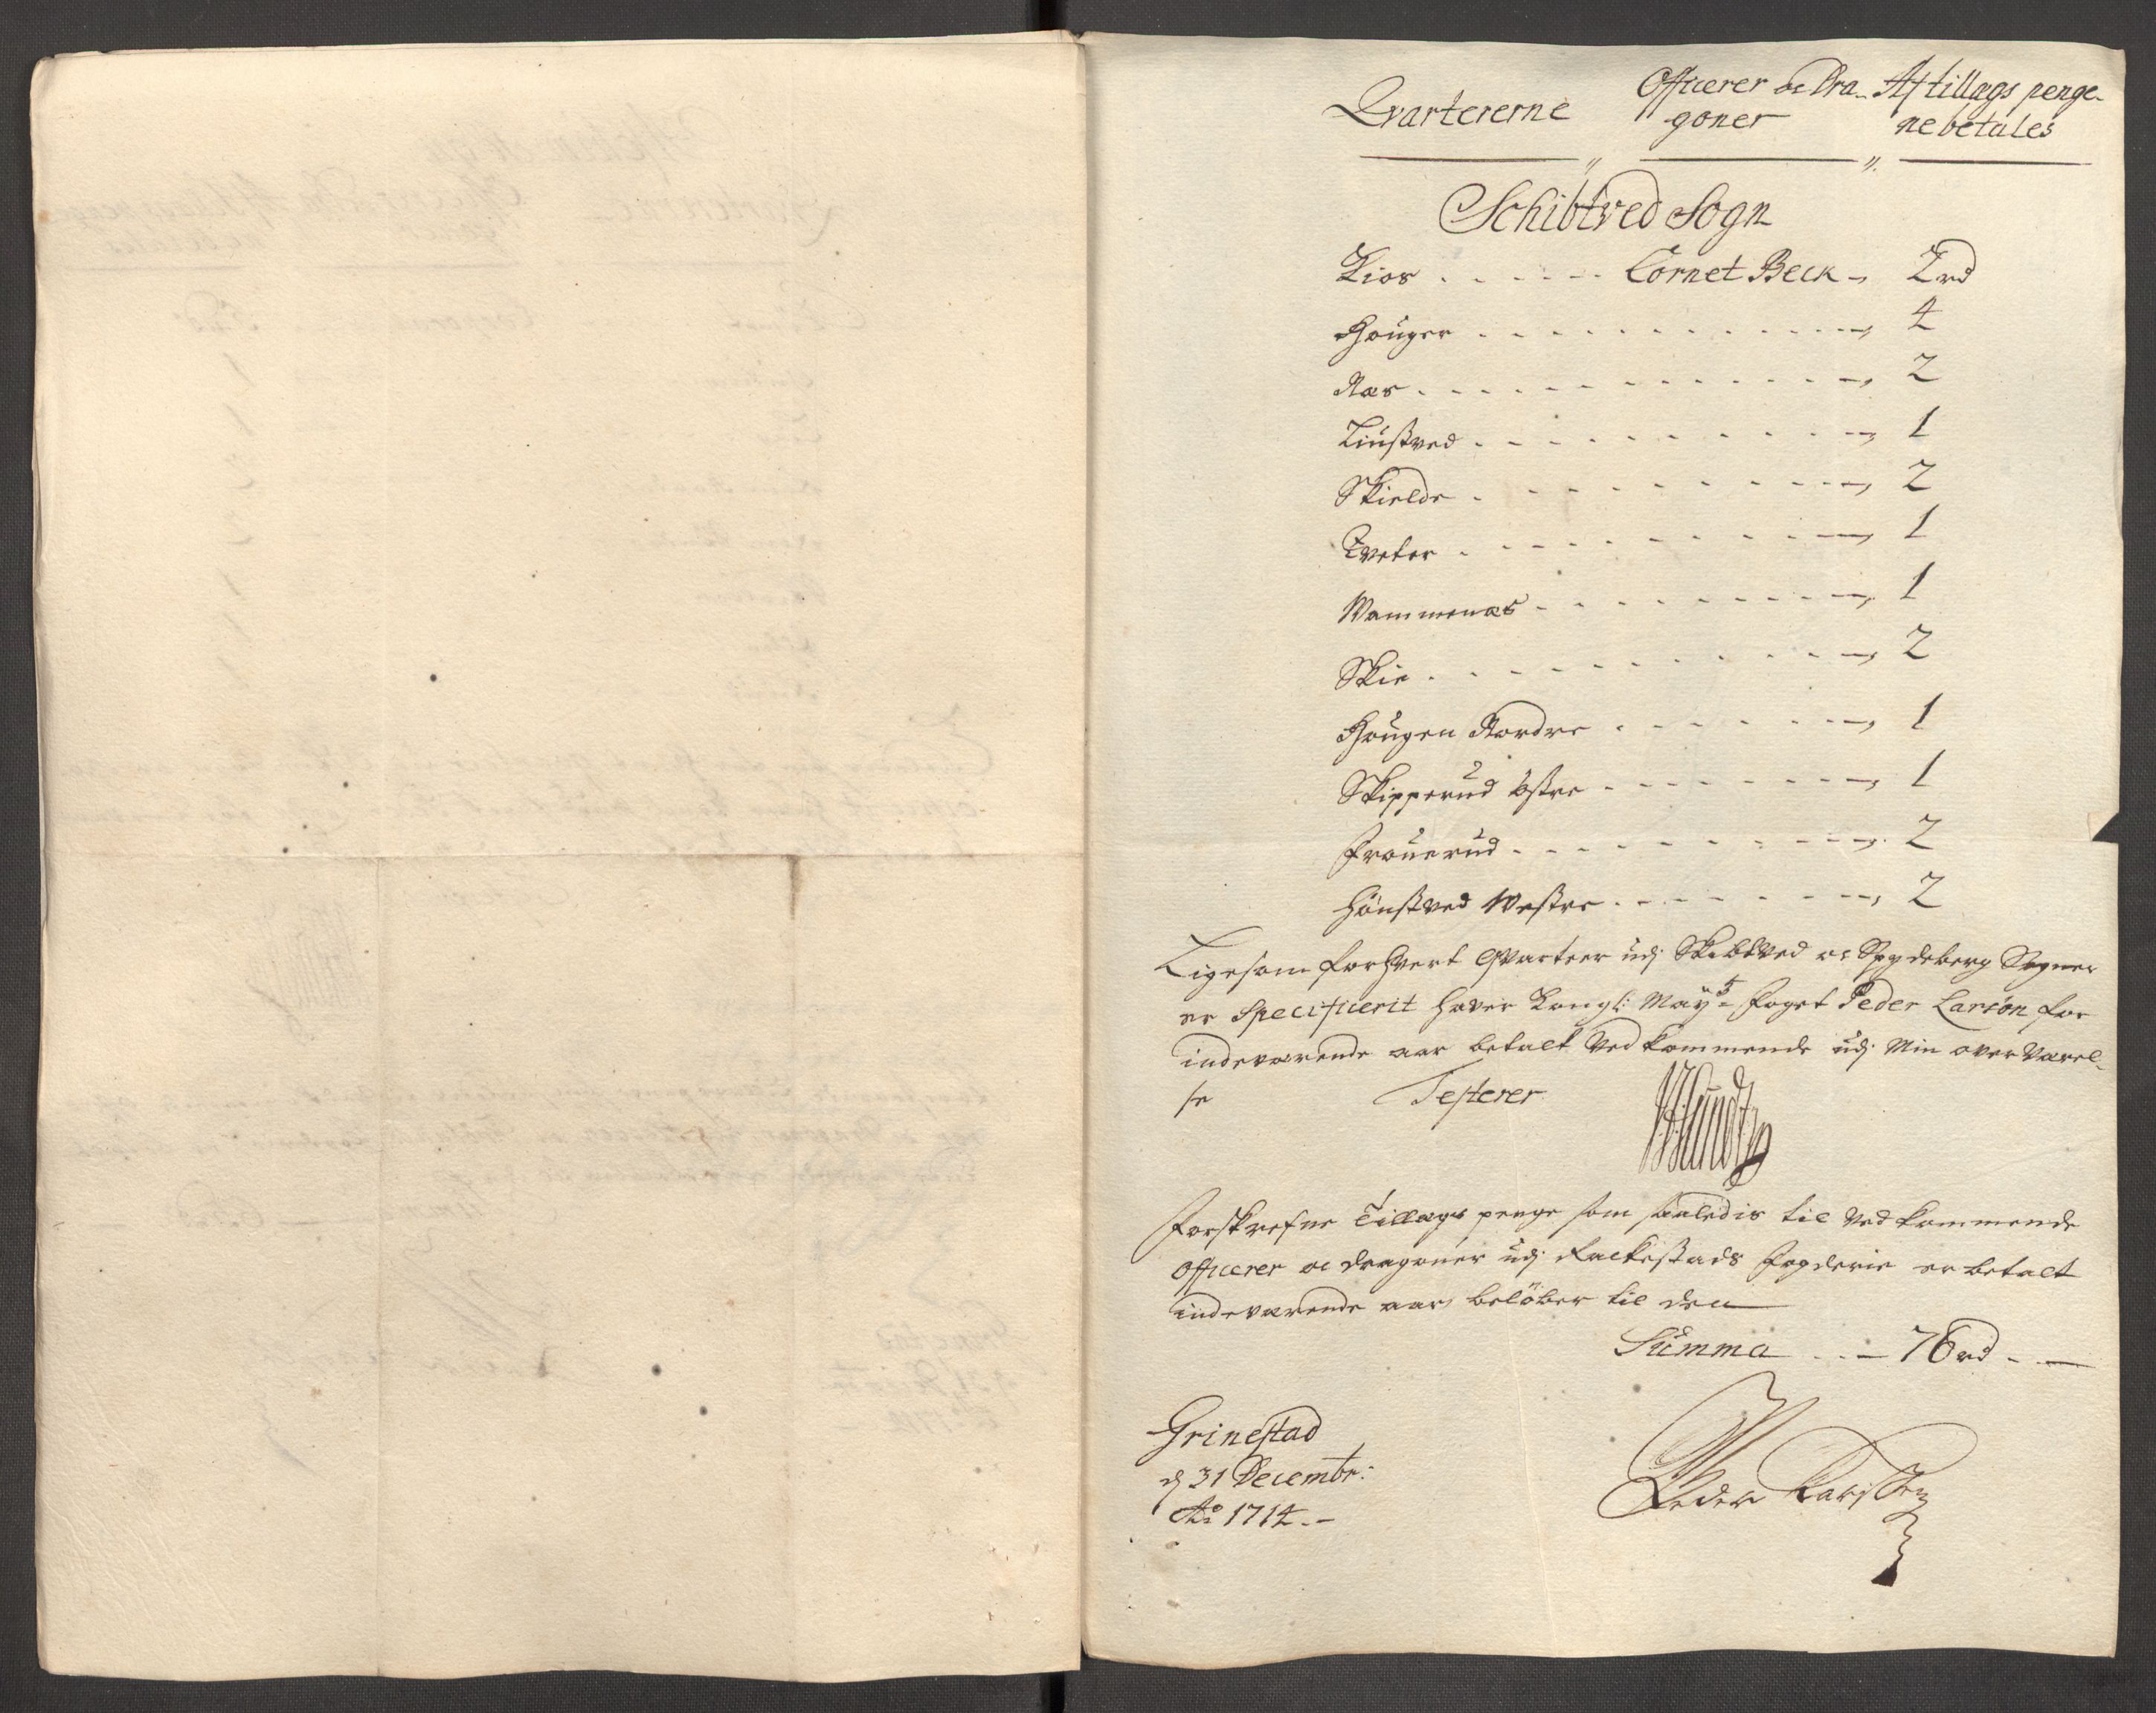 Qvartererne
Officerer oc Dra-
goner
Af tillags penge-
ne betales
Schibtved Sogn
Kios - - - - - Cornet Beck - 2 rd
Houger - - - - 4
Nas - - - - 2
Liustved - - - - 1
Skielde - - - - 2
Tveter - - - - 1
Wammenæs - - - - 1
Skie - - - - 2
Hougen Nordre - - - - 1
Skipperud østre - - - - 1
Frouerud - - - - 2
Hönstved Westre - - - - 2
Ligesom for hvert Qvarteer udj Skibtved oc Spydeberg Sogner
er Specificerit haver Kongl: May:ts foget Peder Larsøn for
indeværende aar betalt Vedkommende udj min overværel-
se Testerer
Forskrefne Tillags penge som saaledis til Vedkommende
Officerer oc dragoner udj Rackestads Fogderie er betalt
indeværende aar, belöber til den
Summa - - 76 rd - -
Grinestad
d 31 Decembr:
Ao 1714. -
Peder Larssen